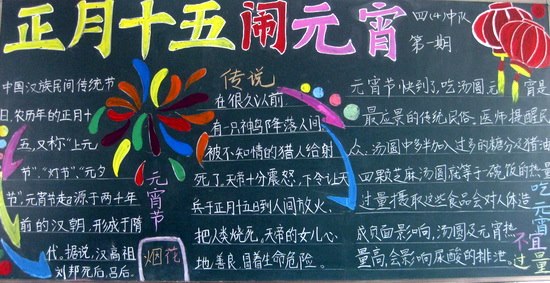 正月十五闹元宵
四(4)中队
第一期
中国汉族民间传统节
日,农历年的正月十
五,又称“上元
节”、“灯节”、“元夕
节”元宵节走源于两千年
前的汉朝,形成于隋
代。据说,汉高祖
刘邦死后,吕后
元宵节
烟花
传说
在很久以前
有一只神鸟降落人间
被不知情的猎人给射
死了。天帝十分震怒,下令让天
兵于正月十五日到人间放火,
把人类烧死。天帝的女儿心
地善良,冒着生命危险。
元宵节快到了,吃汤圆
宵是
最应景的传统民俗,医师提醒民
众,汤圆中多半加入过多的糖分及猪油
四颗芝麻汤圆就等于一碗饭的热量
过量摄取这些食品会对人体造
成负面影响,汤圆及元宵热
量高,会影响尿酸的排泄。
吃元宵不宜过量